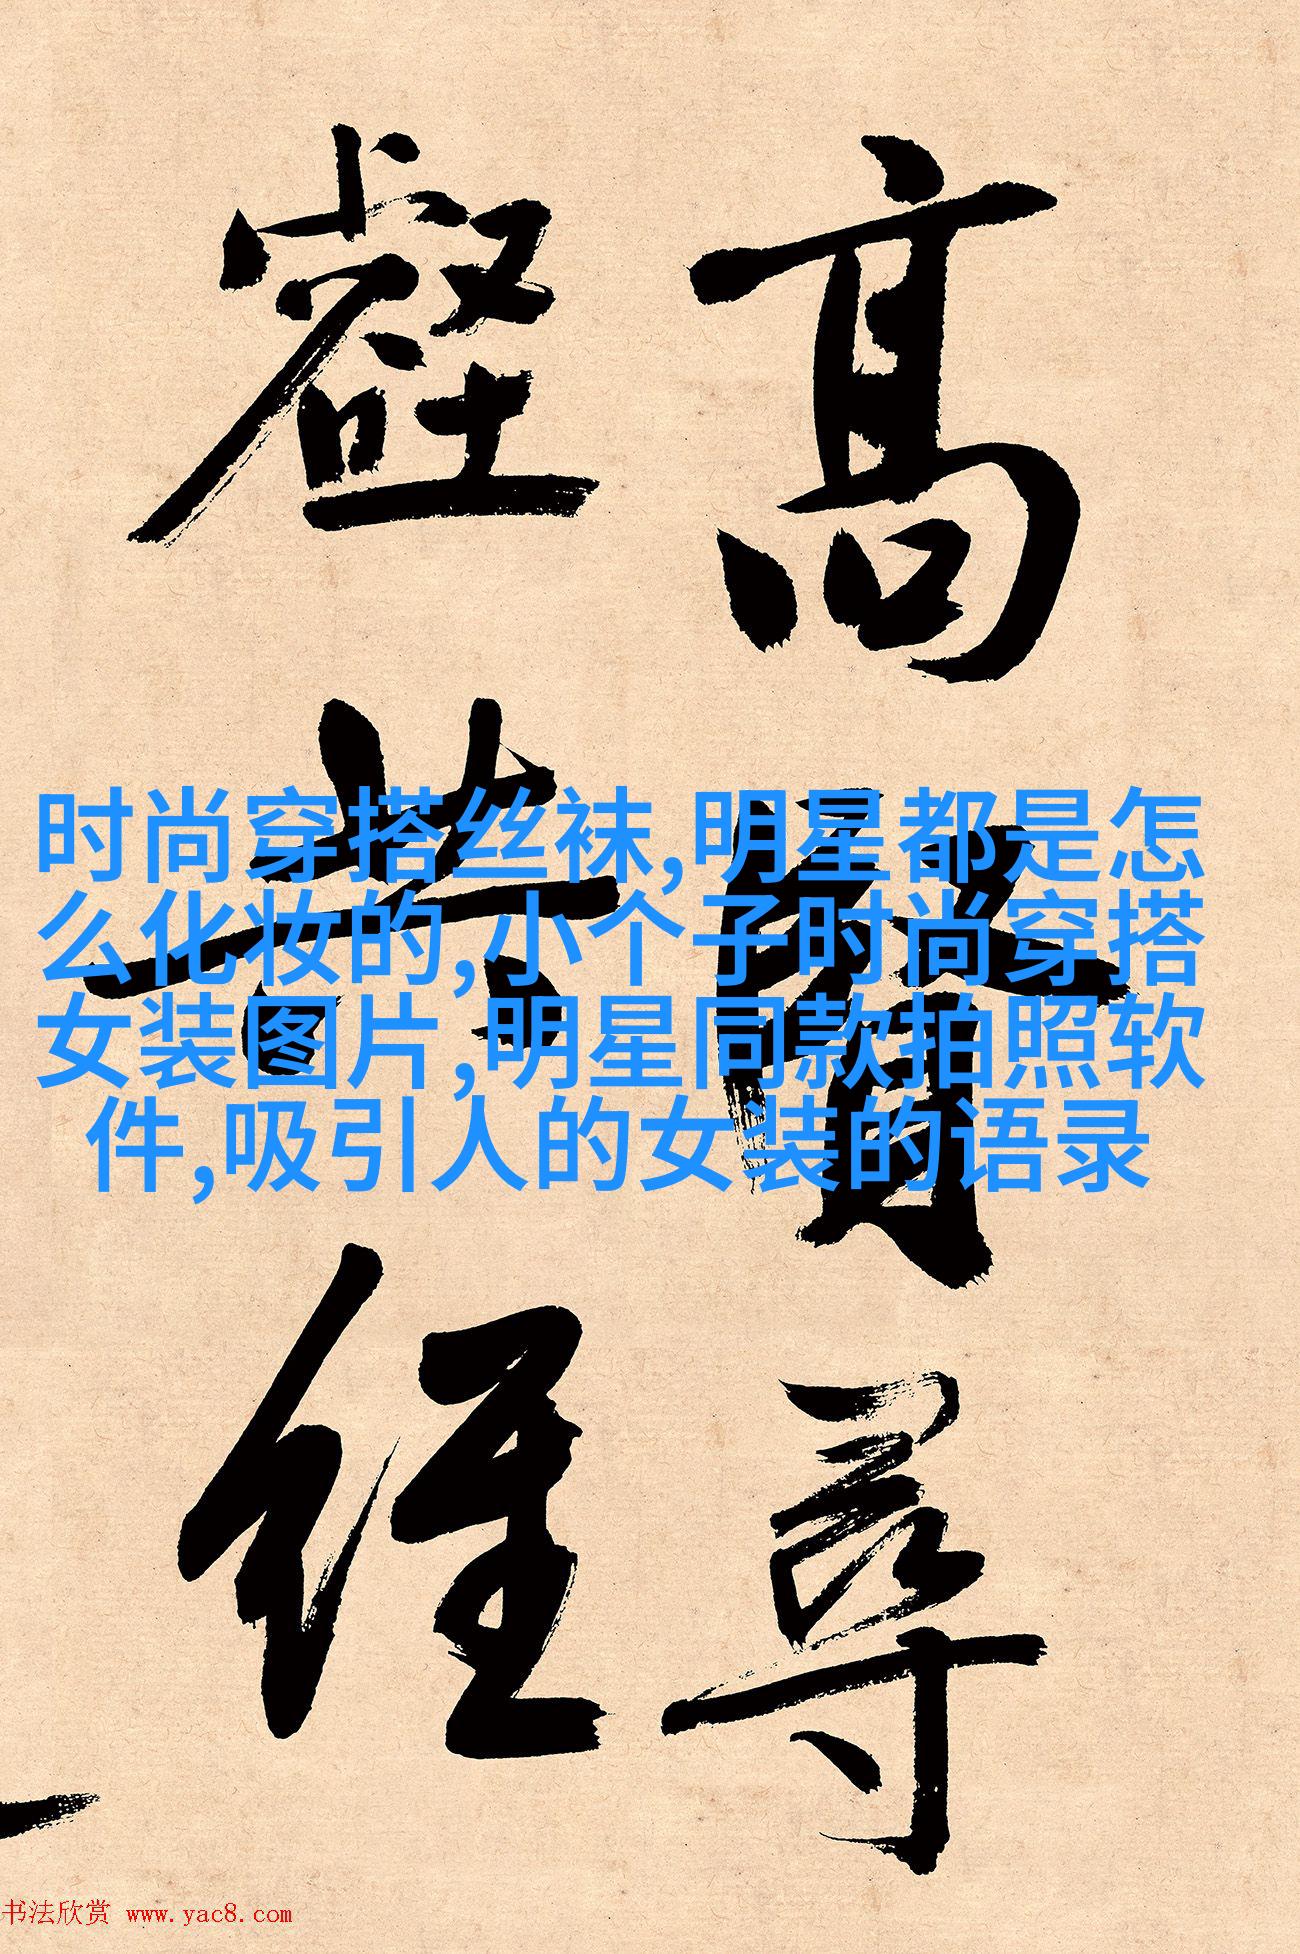 高賢尋
壑共經
时尚穿搭丝袜,明星都是怎
么化妆的,小个子时尚穿搭
女装图片,明星同款拍照软
件,吸引人的女装的语录
书法欣赏 www.yac8.com